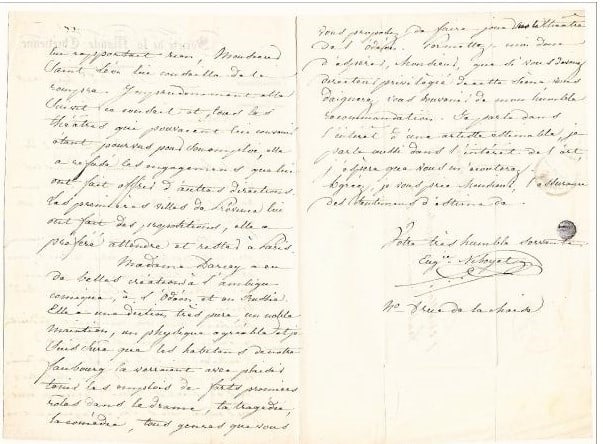 lui rapportant rien, Monsieur
Saint, Léon lui conseilla de le
rompre. Imprudemment elle
suivit ce conseil et, tous les
théâtres que pouvaient lui convenir
étant pourvus pour son emploi, elle
a refusé les engagements que lui
ont fait offrir d'autres directions.
Les premières villes de Province lui
ont fait des propositions, elle a
préféré attendre et rester à Paris.
Madame Darcey a eu
de belles créations à l'ambigu
comique, à l'Odéon et en Russie.
Elle a une diction très pure, un noble
maintien, un physique agréable et je
suis sûre que les habitans de notre
faubourg la verraient avec plaisir
tenir les emplois de forts premiers
rôles dans le drame, la tragédie,
la comédie, tous genres que vous
vous proposez de faire jouer sur le théâtre
de l'Odéon. Permettez-moi donc
d'espérer, Monsieur, que si vous devenez
directeur privilégié de cette scène vous
daignerez vous souvenir de mon humble
recommandation. Je parle dans
l'intérêt d'une artiste estimable, je
parle aussi dans l'intérêt de l'art,
j'espère que vous m'écouterez.
Agréez, je vous prie Monsieur, l'assurance
des sentiments d'estime de
Votre très humble servante
Eugie Niboyet
rue de la chaise